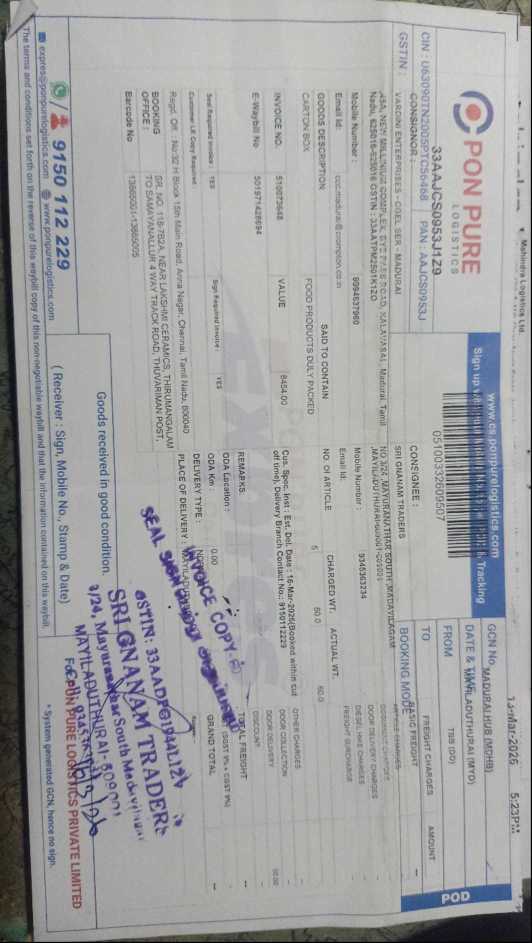 Mahindra Logistics Ltd.
PON PURE
LOGISTICS
33AAJCS0953J1Z9
CIN : U63090TN2005PTC056468 PAN : AAJCS0953J
www.cs.ponpurelogistics.com
Sign up
& Tracking
05100332609507
13-Mar-2026 5:23PM
POD
GCN No.
DATE & TIME
FROM
MADURAI HUB (MDHB)
TO
MAYILADUTHURAI (MYD)
BOOKING MODE
TBB (DD)
GSTIN :
CONSIGNOR :
VARDINI ENTERPRISES - CGEL SER - MADURAI
48A, NEW MILLENIUM COMPLEX, BYE PASS ROAD, KALAVASAL, Madurai, Tamil
Nadu, 625016-625016 GSTIN : 33AATPM2501K1ZO
Mobile Number : 9994637960
Email Id: ccc.madurai@crompton.co.in
CONSIGNEE :
SRI GNANAM TRADERS
NO 3/24 ,MAYURANATHAR SOUTH ,MADAVILAGAM
Mobile Number : 9345363234
Email Id:
FREIGHT CHARGES AMOUNT
BASIC FREIGHT --
DOOR DELIVERY CHARGES
DIESEL HIKE CHARGES
FREIGHT SURCHARGE
OTHER CHARGES
DOOR COLLECTION
DOOR DELIVERY
DISCOUNT
TOTAL FREIGHT --
(SGST 9% + CGST 9%)
GRAND TOTAL --
GOODS DESCRIPTION SAID TO CONTAIN NO. Of ARTICLE CHARGED WT. ACTUAL WT.
CARTON BOX FOOD PRODUCTS DULY PACKED 5 60.0 60.0
INVOICE NO. 510073648 VALUE 8454.00
Cus. Spec. Inst : Est. Del. Date : 16-Mar-2026(Booked within cut
off time), Delivery Branch Contact No.: 9150112229
E-Waybill No 501971426694
REMARKS
ODA Location :
ODA Km : 0.00
Seal Required Invoice : YES Sign Required Invoice : YES
Customer LR Copy Required
DELIVERY TYPE :
PLACE OF DELIVERY :
Regd. Off. : No:32 H Block 15th Main Road, Anna Nagar, Chennai, Tamil Nadu, 600040
BOOKING OFFICE : SR. NO. 118-7B2A, NEAR LAKSHMI CERAMICS, THIRUMANGALAM
TO SAMAYANALLUR 4 WAY TRACK ROAD, THUVARIMAN POST,
Barcode No 13865001-13865005
INVOICE COPY
SEAL SIGN
GSTIN: 33AADPG1944L1ZV
SRI GNANAM TRADERS
3/24, Mayuranathar South Madavilagam
MAYILADUTHURAI - 609001
Goods received in good condition.
( Receiver : Sign, Mobile No., Stamp & Date)
For PON PURE LOGISTICS PRIVATE LIMITED
9150 112 229
expres@ponpurelogistics.com www.ponpurelogistics.com
* System generated GCN, hence no sign.
The terms and conditions set forth on the reverse of this waybill copy of this non-negotiable waybill and that the information contained on this waybill.